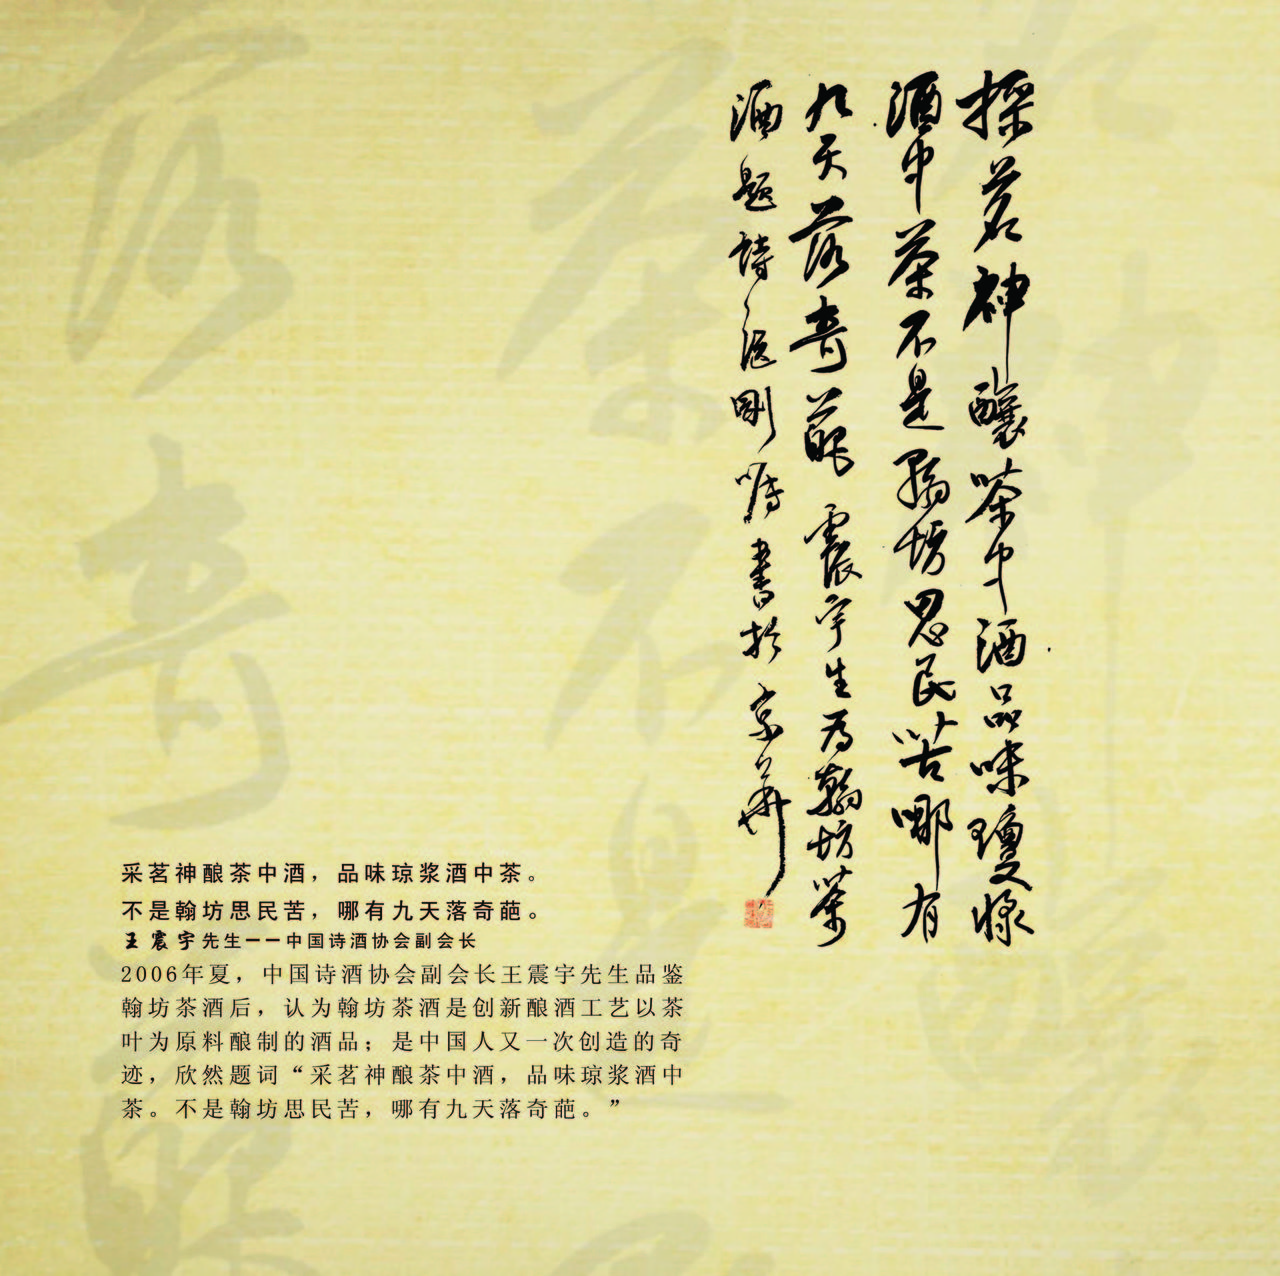 採茗神釀茶中酒品味瓊漿
酒中茶不是翰坊思民苦哪有
九天落奇葩 震宇生为翰坊茶
酒题詩
剛嘱書於京華
采茗神酿茶中酒，品味琼浆酒中茶。
不是翰坊思民苦，哪有九天落奇葩。
王震宇先生——中国诗酒协会副会长
2006年夏，中国诗酒协会副会长王震宇先生品鉴
翰坊茶酒后，认为翰坊茶酒是创新酿酒工艺以茶
叶为原料酿制的酒品；是中国人又一次创造的奇
迹，欣然题词“采茗神酿茶中酒，品味琼浆酒中
茶。不是翰坊思民苦，哪有九天落奇葩。”